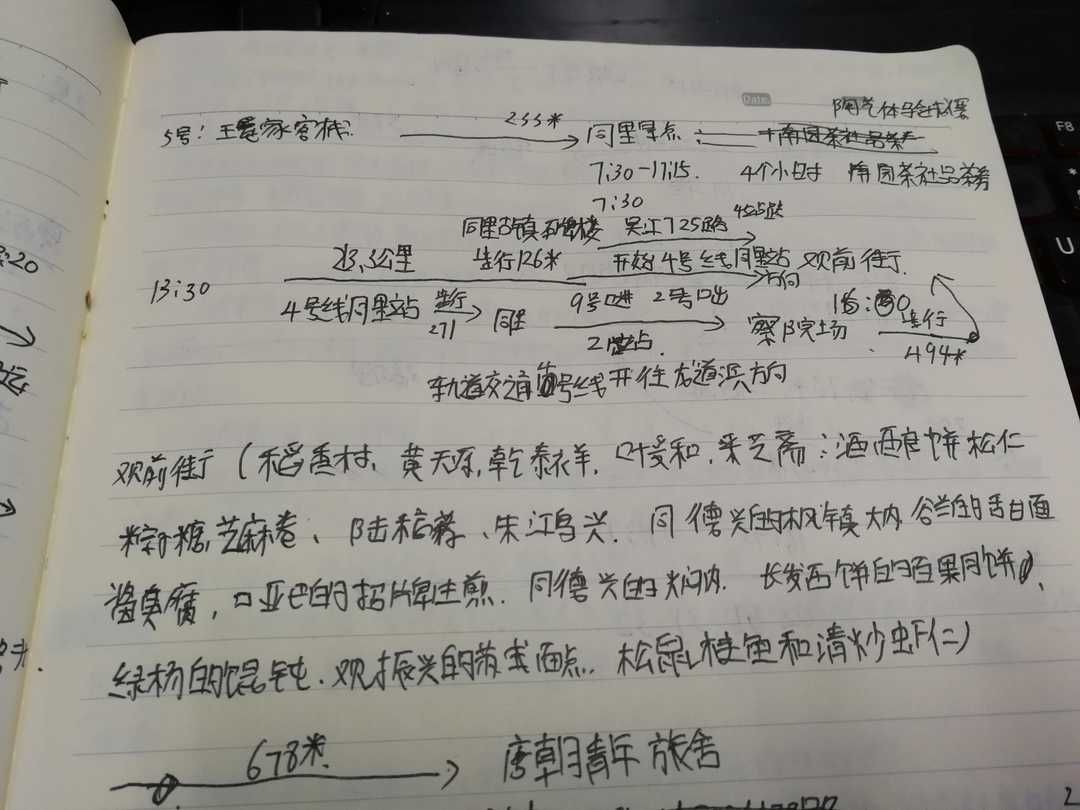 陶艺体验
5号: 王家客栈 233米 同里早点 南园茶社品茶
7:30-17:15. 4个小时 南园茶社品茶
7:30
同里古镇石牌楼 吴江725路
13:30 23.3公里 步行126米 开始4号线同里站方向 观前街
4号线同里站 步行 271 同里 9号口进 2号口出 2站 察院场 步行 494米
轨道交通 号线开往龙道浜方向
观前街 (稻香村, 黄天源, 乾泰祥, 叶受和, 采芝斋: 酒酿饼松仁
粽子糖, 芝麻卷、陆稿荐、朱鸿兴. 同德兴的枫镇大肉 面
酱臭腐, 哑巴的招牌生煎. 同德兴的焖肉. 长发西饼的百果月饼,
绿杨的馄饨. 观振兴的苏式面点. 松鼠桂鱼和清炒虾仁)
678米 唐朝青年旅舍
F8
U
Date:
2